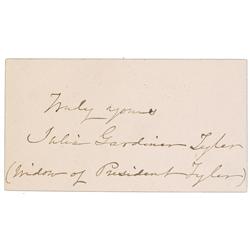 Truly yours
Julia Gardiner Tyler
(widow of President Tyler)